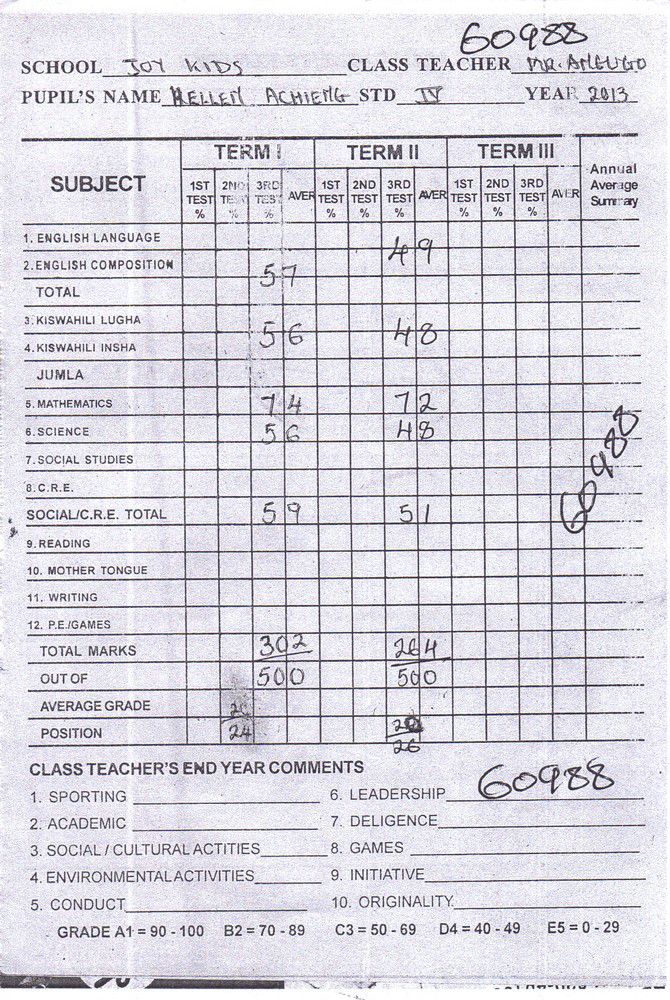 60988
SCHOOL JOY KIDS CLASS TEACHER MR. AMEUGO
PUPIL'S NAME HELLEN ACHIENG STD IV YEAR 2013
TERM I TERM II TERM III
SUBJECT 1ST TEST % 2ND TEST % 3RD TEST % AVER 1ST TEST % 2ND TEST % 3RD TEST % AVER 1ST TEST % 2ND TEST % 3RD TEST % AVER Annual Average Summary
1. ENGLISH LANGUAGE 49
2. ENGLISH COMPOSITION 57
TOTAL
3. KISWAHILI LUGHA
56 48
4. KISWAHILI INSHA
JUMLA
5. MATHEMATICS 74 72
6. SCIENCE 56 48
60988
7. SOCIAL STUDIES
8. C.R.E.
SOCIAL/C.R.E. TOTAL 59 51
9. READING
10. MOTHER TONGUE
11. WRITING
12. P.E./GAMES
TOTAL MARKS 302 264
OUT OF 500 500
AVERAGE GRADE
POSITION 24
26
CLASS TEACHER'S END YEAR COMMENTS
60988
1. SPORTING 6. LEADERSHIP
2. ACADEMIC 7. DELIGENCE
3. SOCIAL / CULTURAL ACTITIES 8. GAMES
4. ENVIRONMENTAL ACTIVITIES 9. INITIATIVE
5. CONDUCT 10. ORIGINALITY
GRADE A1 = 90 - 100 B2 = 70 - 89 C3 = 50 - 69 D4 = 40 - 49 E5 = 0 - 29